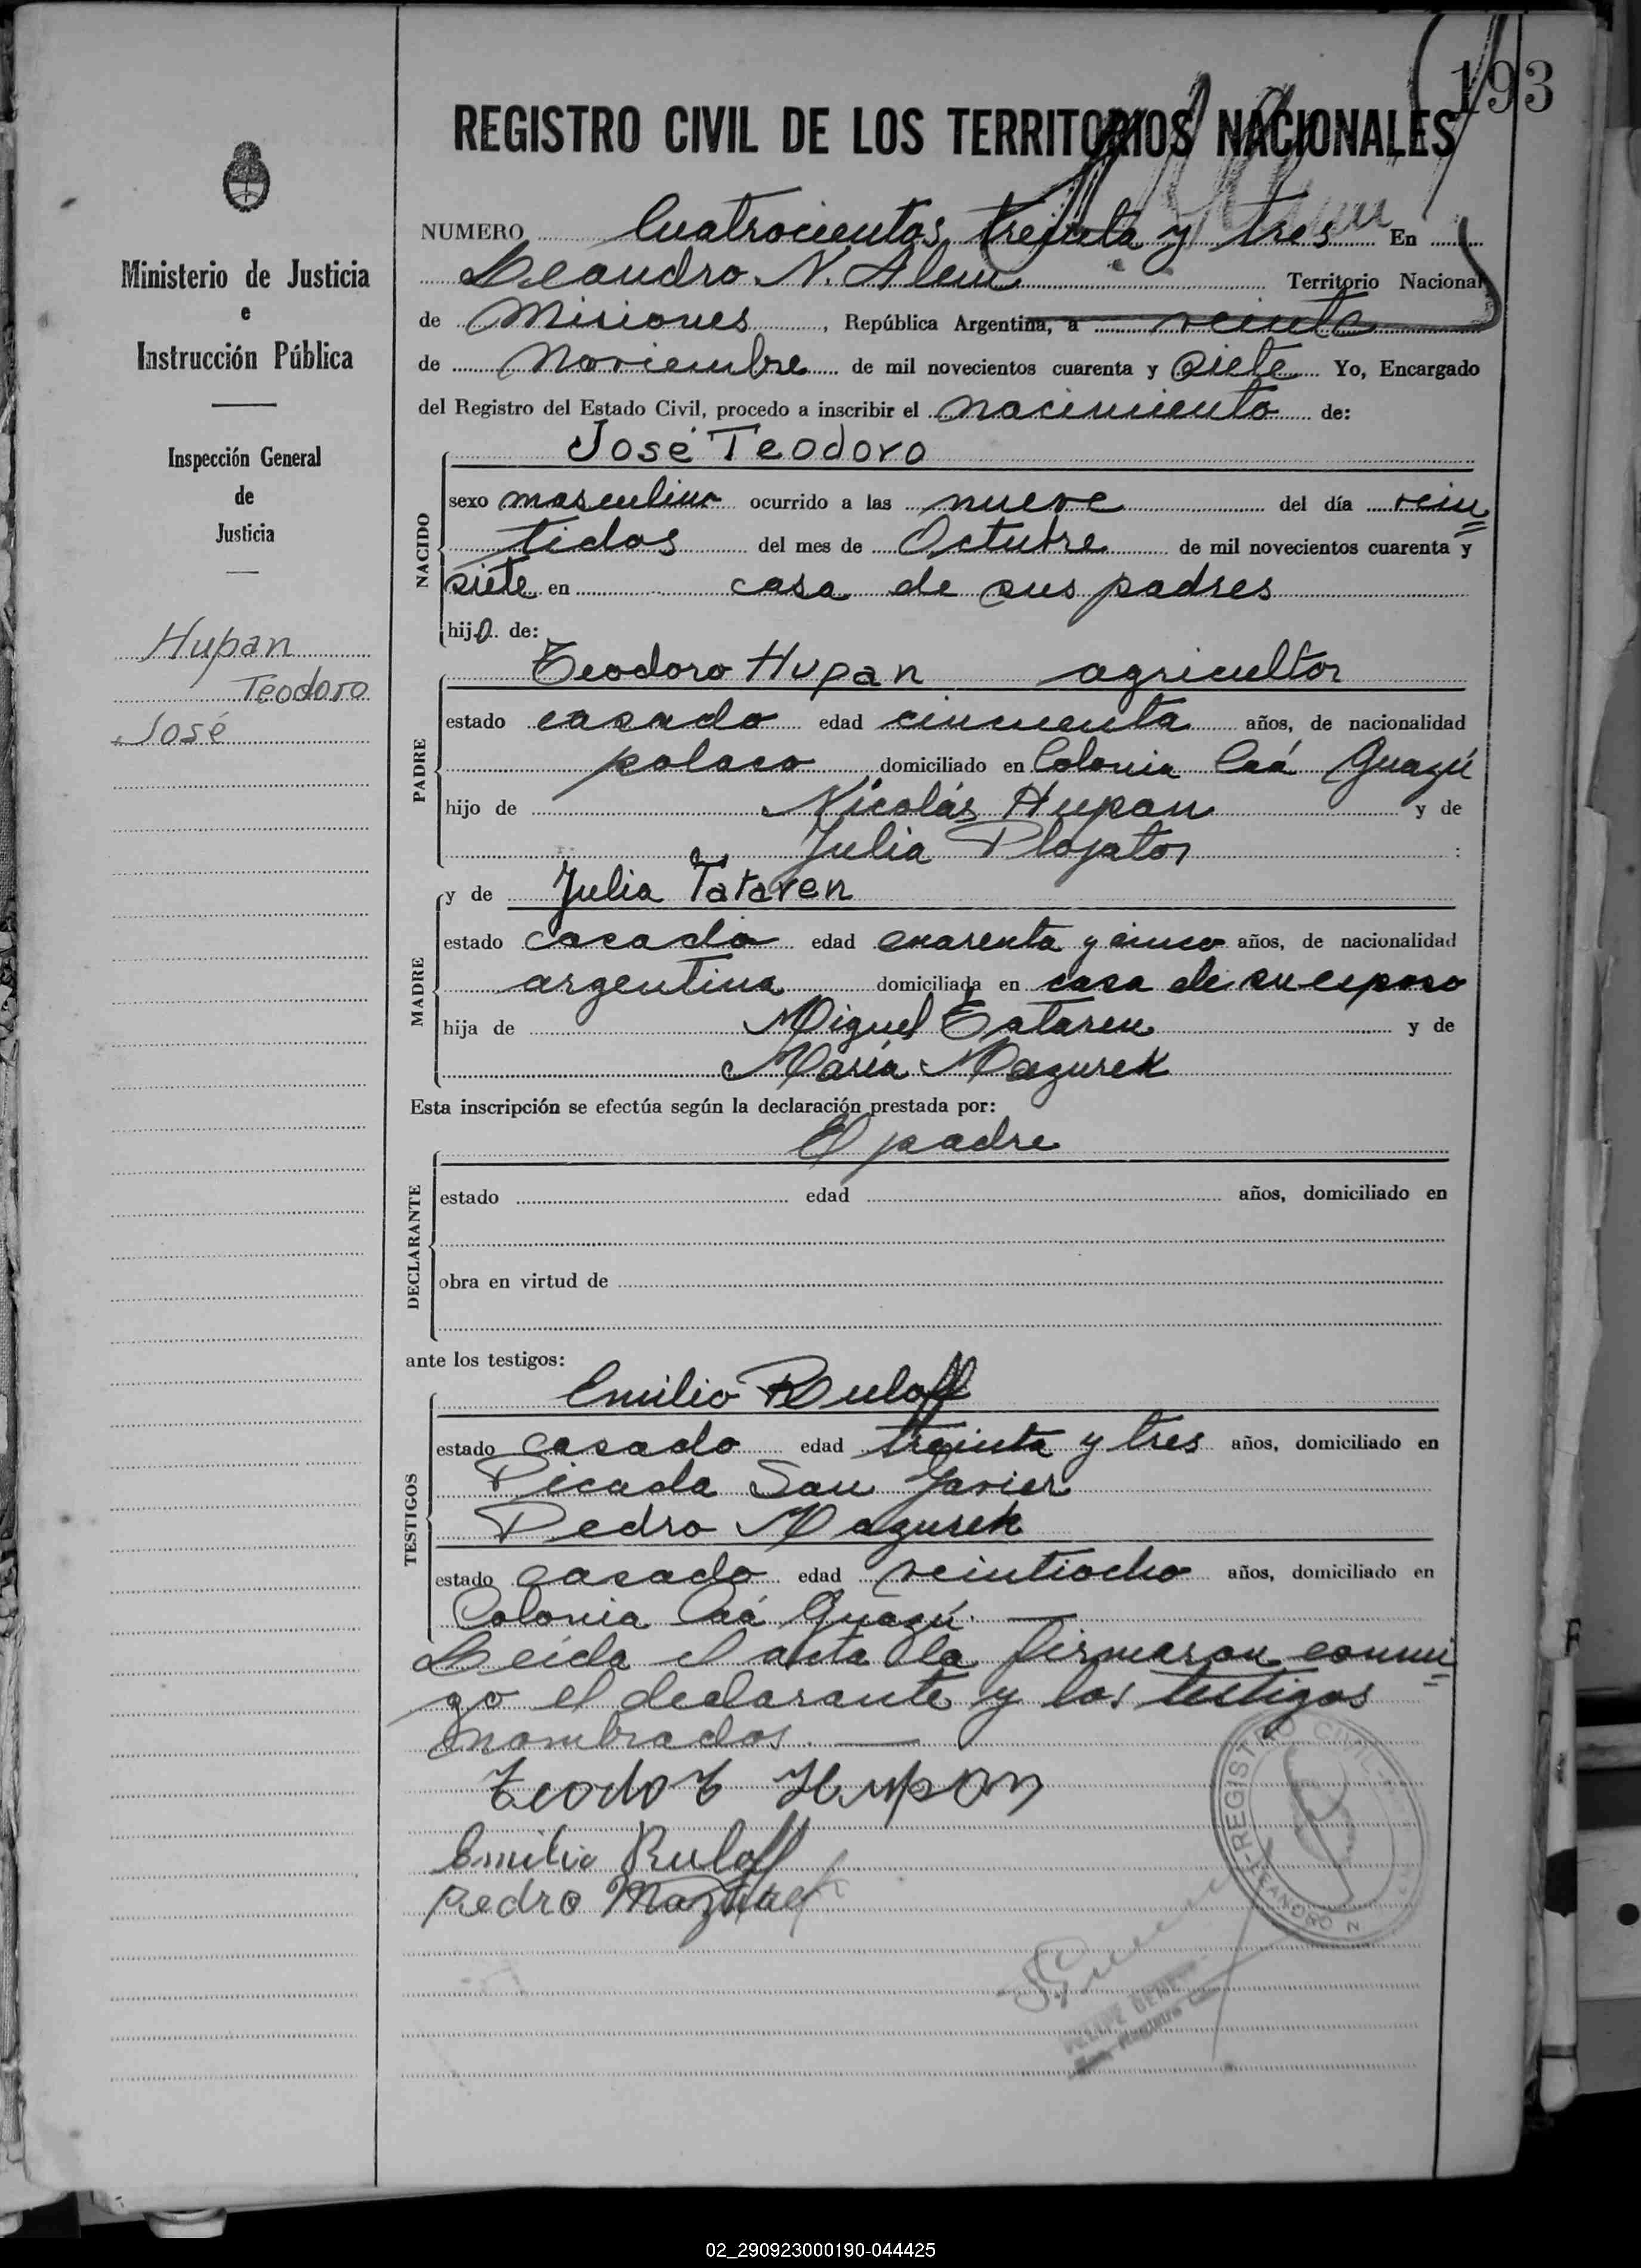 193
REGISTRO CIVIL DE LOS TERRITORIOS NACIONALES
Ministerio de Justicia
e
Instrucción Pública
Inspección General
de
Justicia
Hupan
Teodoro
José
NUMERO Cuatrocientos treinta y tres En
Leandro N. Alem Territorio Nacional
de Misiones, República Argentina, a veinte
de Noviembre de mil novecientos cuarenta y siete Yo, Encargado
del Registro del Estado Civil, procedo a inscribir el nacimiento de:
José Teodoro
NACIDO
sexo masculino ocurrido a las nueve del día vein
tidos del mes de Octubre de mil novecientos cuarenta y
siete en casa de sus padres
hijo de:
Teodoro Hupan agricultor
PADRE
estado casado edad cincuenta años, de nacionalidad
polaco domiciliado en Colonia Caá Guazú
hijo de Nicolás Hupan y de
Julia
y de Julia Tataren
MADRE
estado casada edad cuarenta y cinco años, de nacionalidad
argentina domiciliada en casa de su esposo
hija de Miguel Tataren y de
María Mazurek
Esta inscripción se efectúa según la declaración prestada por:
El padre
DECLARANTE
estado edad años, domiciliado en
obra en virtud de
ante los testigos:
Emilio Ruloff
TESTIGOS
estado casado edad treinta y tres años, domiciliado en
Picada San Javier
Pedro Mazurek
estado casado edad veintiocho años, domiciliado en
Colonia Caá Guazú.
Leída el acta la firmaron conmi
go el declarante y los testigos
nombrados.
Hupan
Emilio Ruloff
Pedro Mazurek
REGISTRO CIVIL
LEANDRO N
FELIPE
02_290923000190-044425